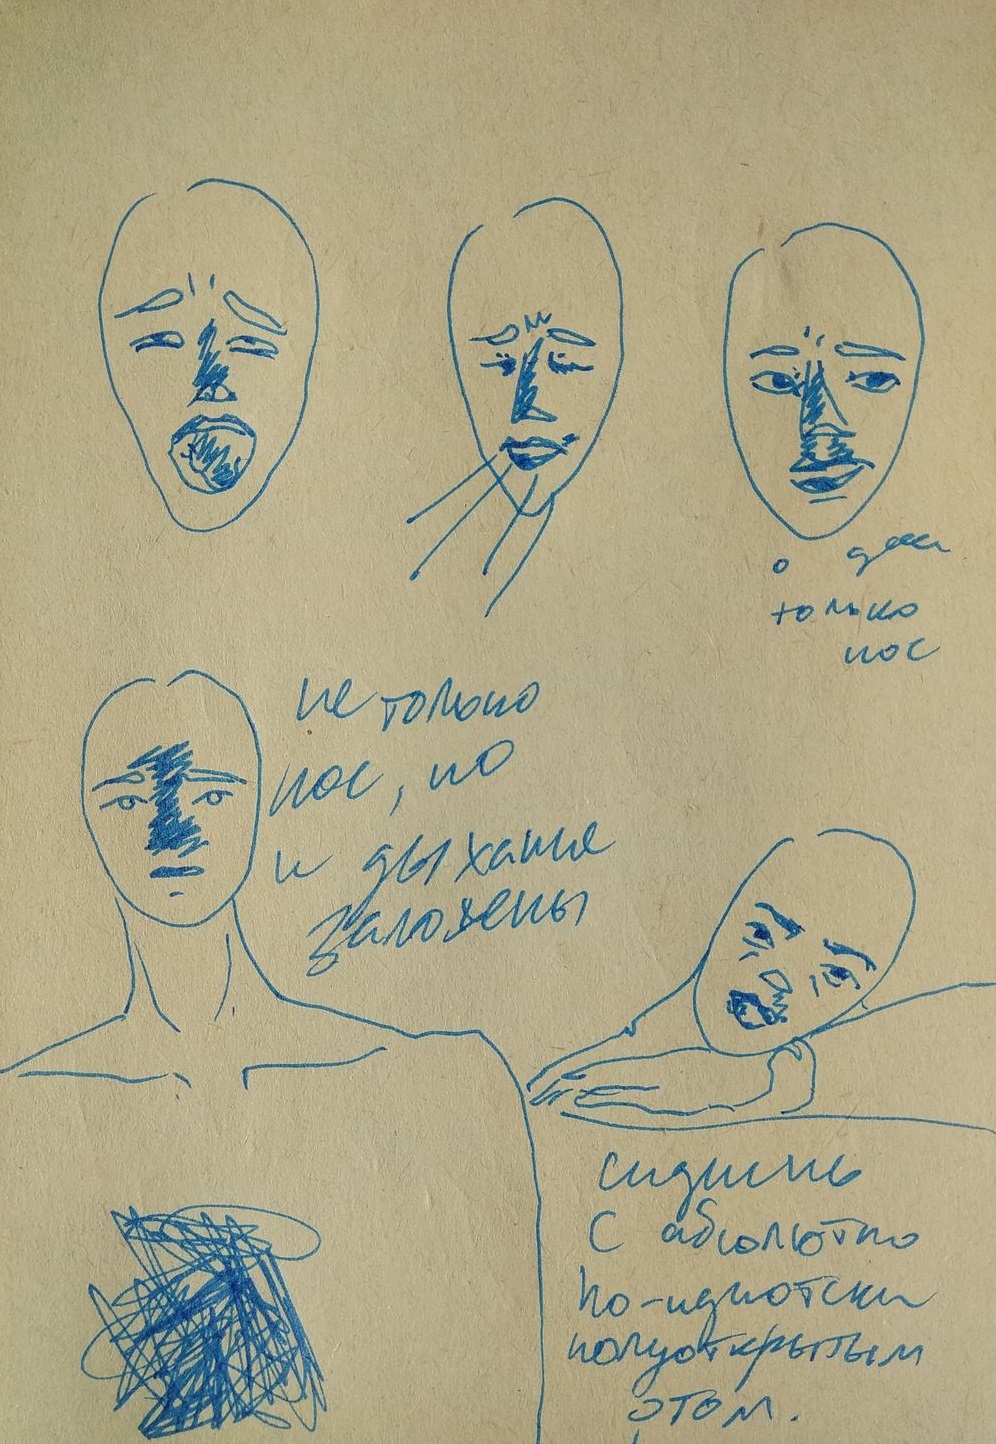 о
только
нос
не только
нос, но
и дыхание
заложены
сидишь
с абсолютно
по-идиотски
полуоткрытым
ртом.